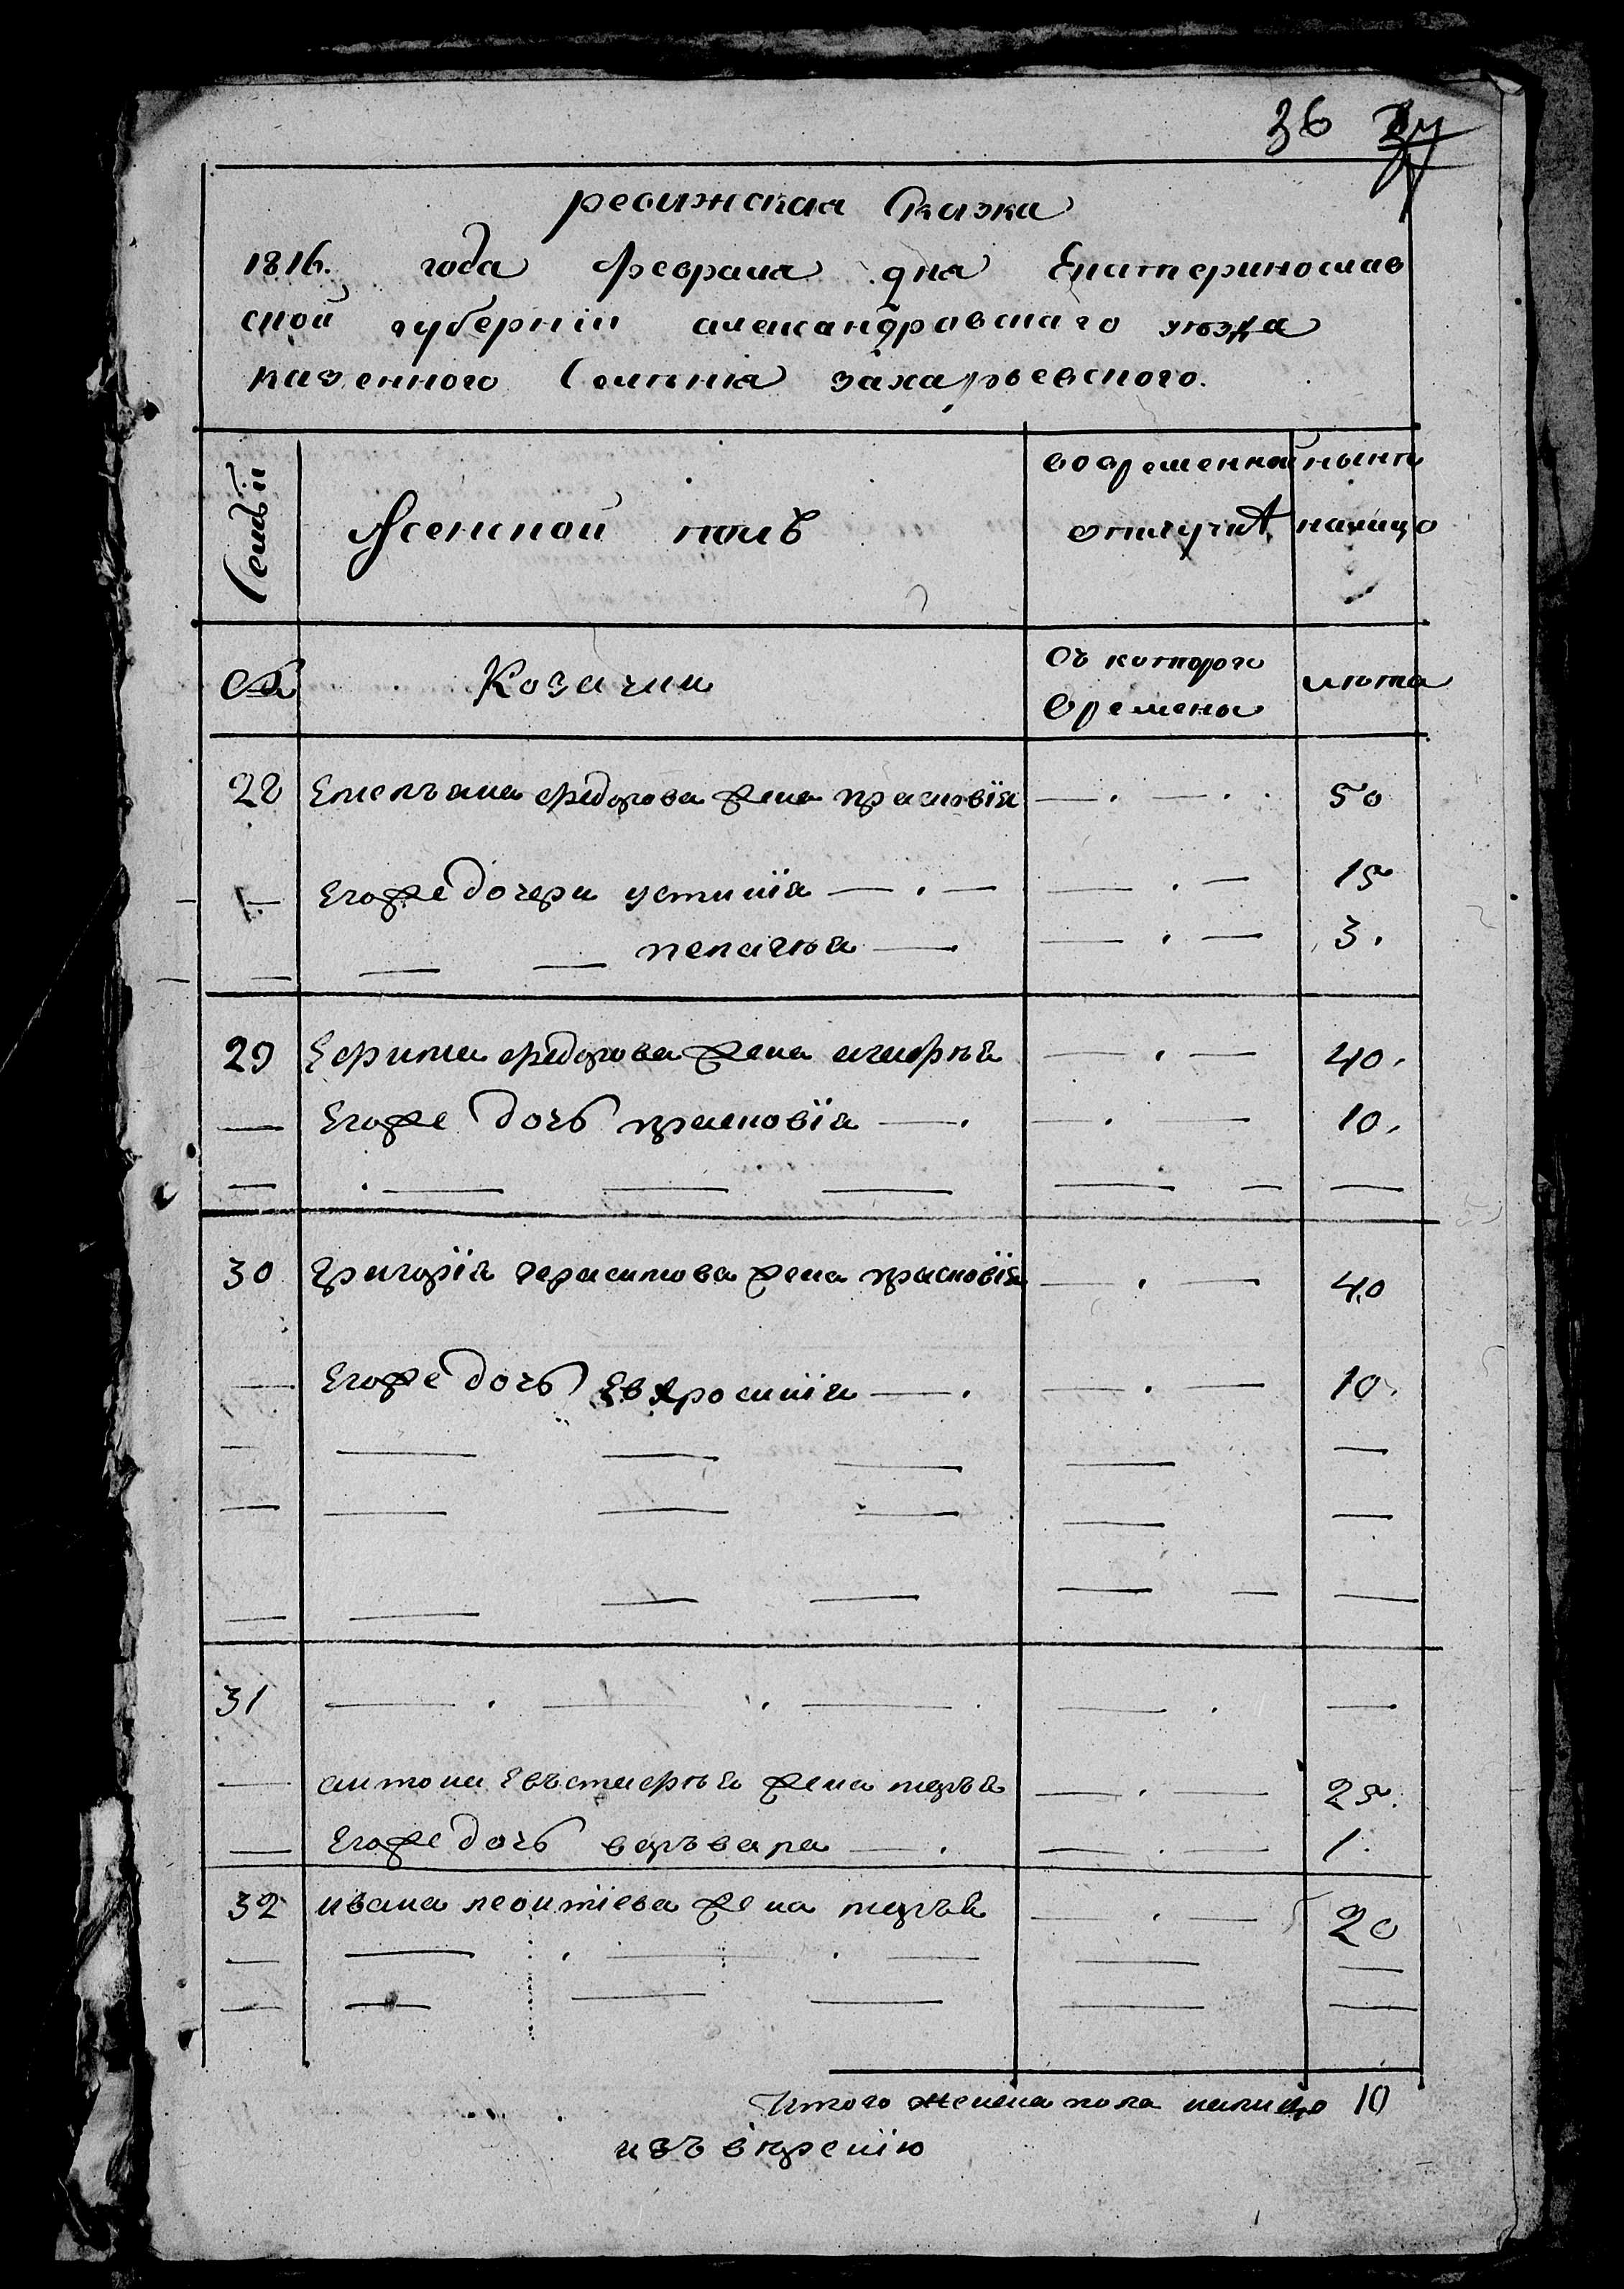 36
ревижская Сказка
1816. года февраля дня Екатеринослав
ской губерніи александровскаго уѣзда
казенного Селенія захарьевского.
Семьи
Женской полъ
во временной
отлучкѣ
нынѣ
налицо
№
Козачки
Съ которого
времены
лѣта
28 Емельяна федорова жена прасковія — . — . . 50
Егоже дочери устинія — . — — . — 15
— — пелагѣя — — . — 3.
29 Ефима федорова жена агафѣя — . — 40.
— Егоже дочь прасковія — . — . — 10.
30 Григорія герасимова жена прасковія — . — 40
— Егоже дочь Евфросинія — . — . — 10.
31 — . — . — — . —
— антона Евъстафѣя жена марья — . — 25.
— Егоже дочь варъвара — . — . — 1.
32 ивана леонтіева жена марья — . — 20
Итого женска пола налицо 10